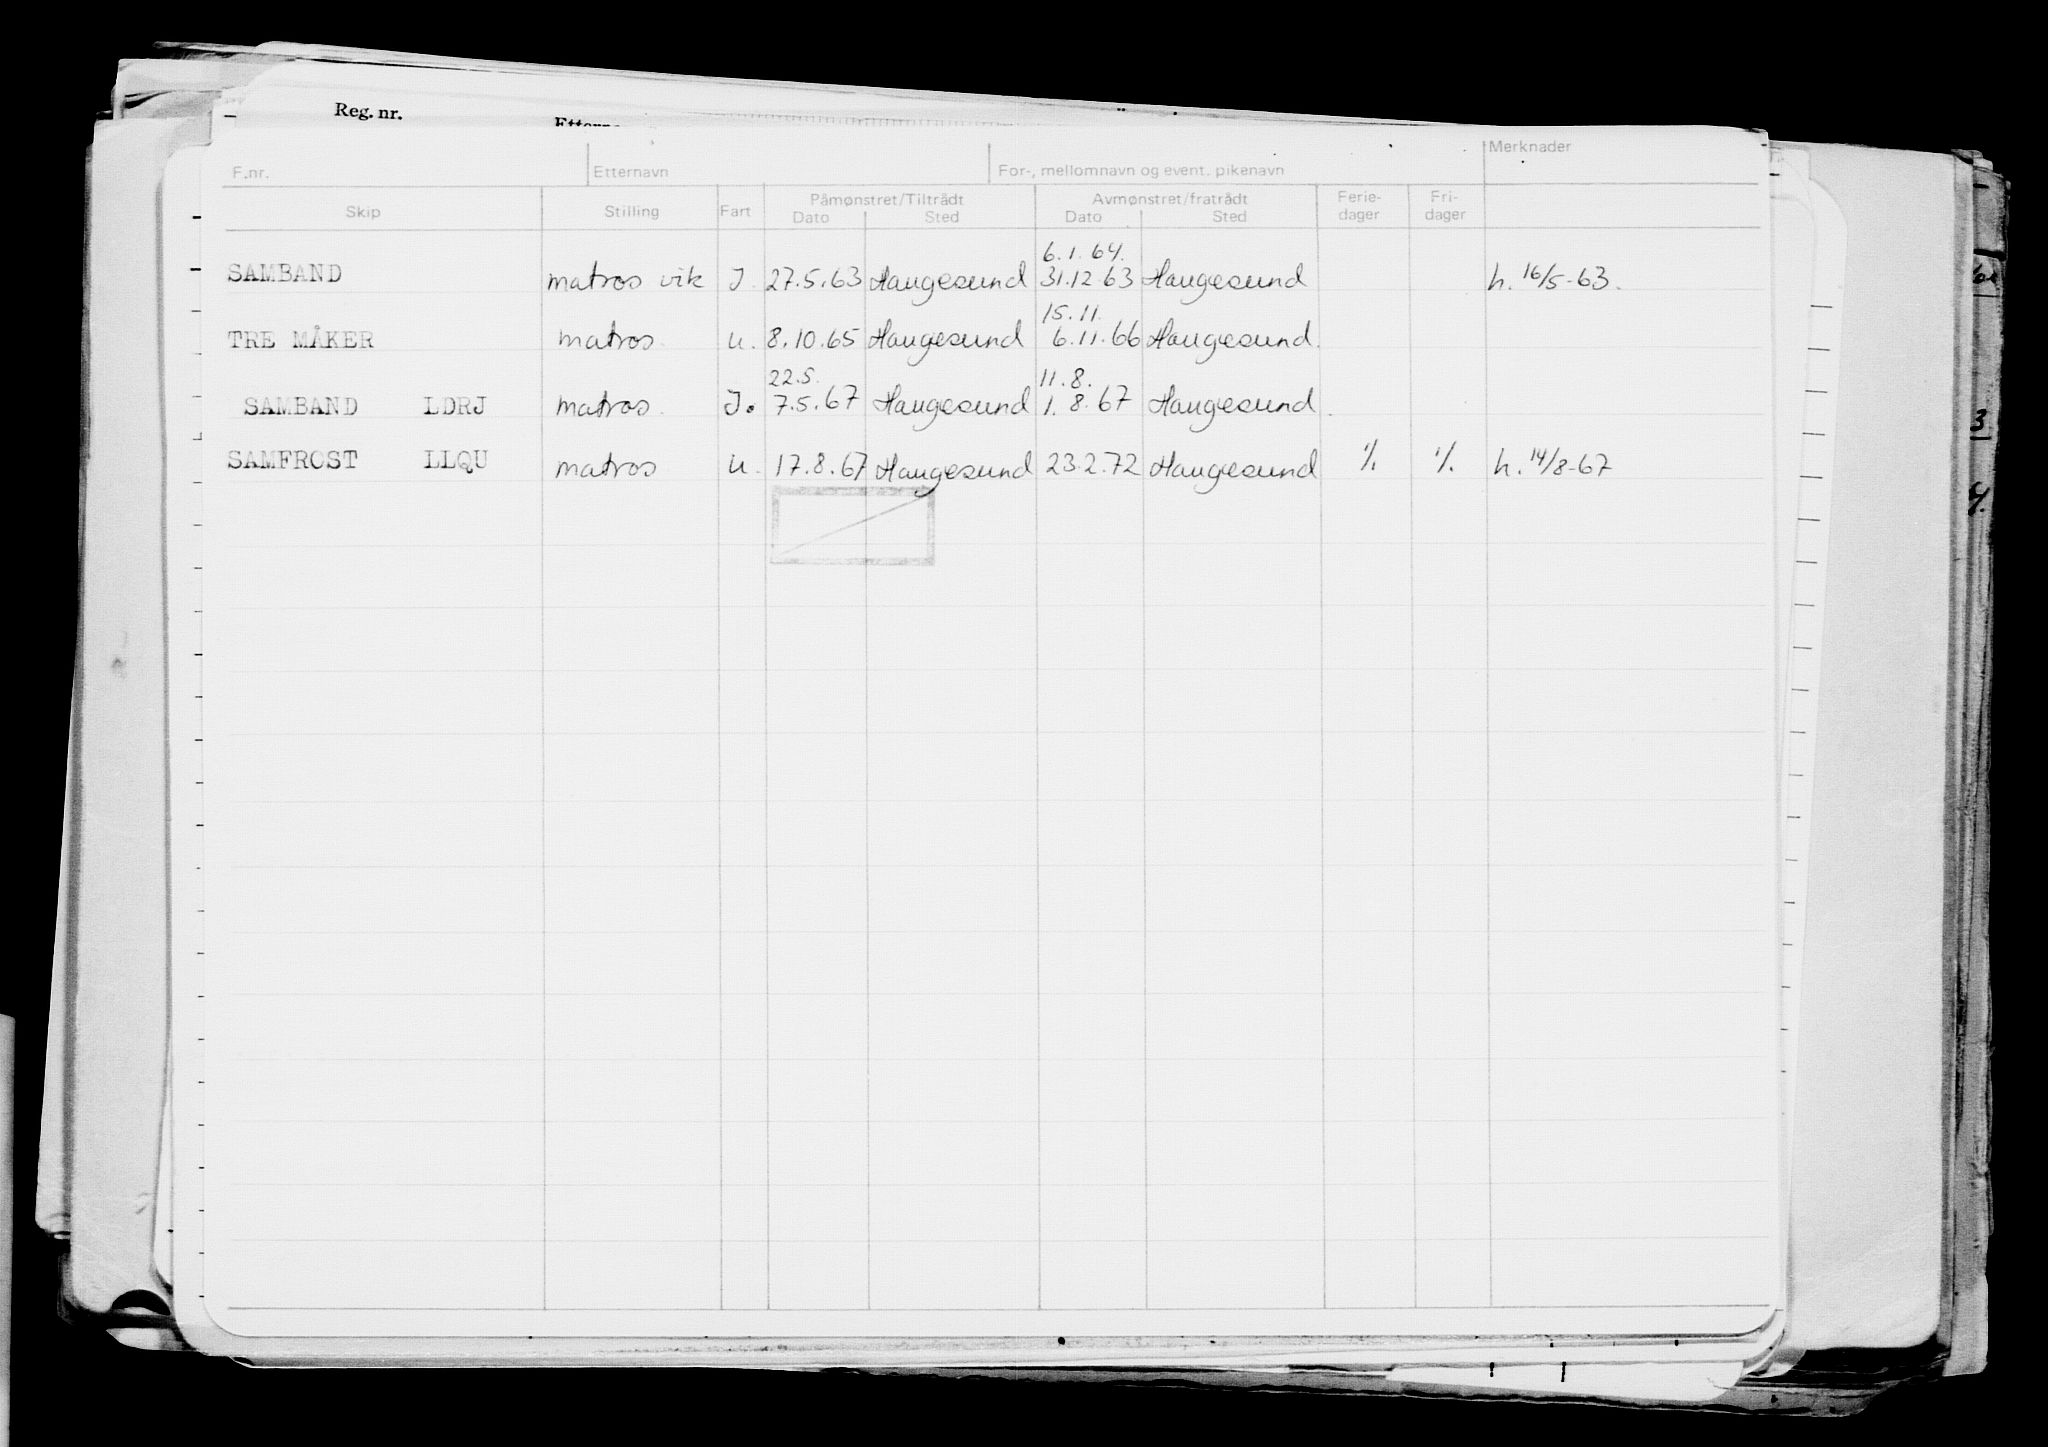 Reg. nr.
F.nr. Etternavn For-, mellomnavn og event. pikenavn Merknader
Skip Stilling Fart Påmønstret/Tiltrådt Avmønstret/fratrådt Ferie- Fri-
Dato Sted Dato Sted dager dager
6.1.64.
SAMBAND matros vik J. 27.5.63 Haugesund 31.12.63 Haugesund h. 16/5-63.
15.11.
TRE MÅKER matros. u. 8.10.65 Haugesund 6.11.66 Haugesund.
22.5. 11.8.
SAMBAND LDRJ matros. J. 7.5.67 Haugesund 1.8.67 Haugesund.
SAMFROST LLQU matros u. 17.8.67 Haugesund 23.2.72 Haugesund % % h. 14/8-67